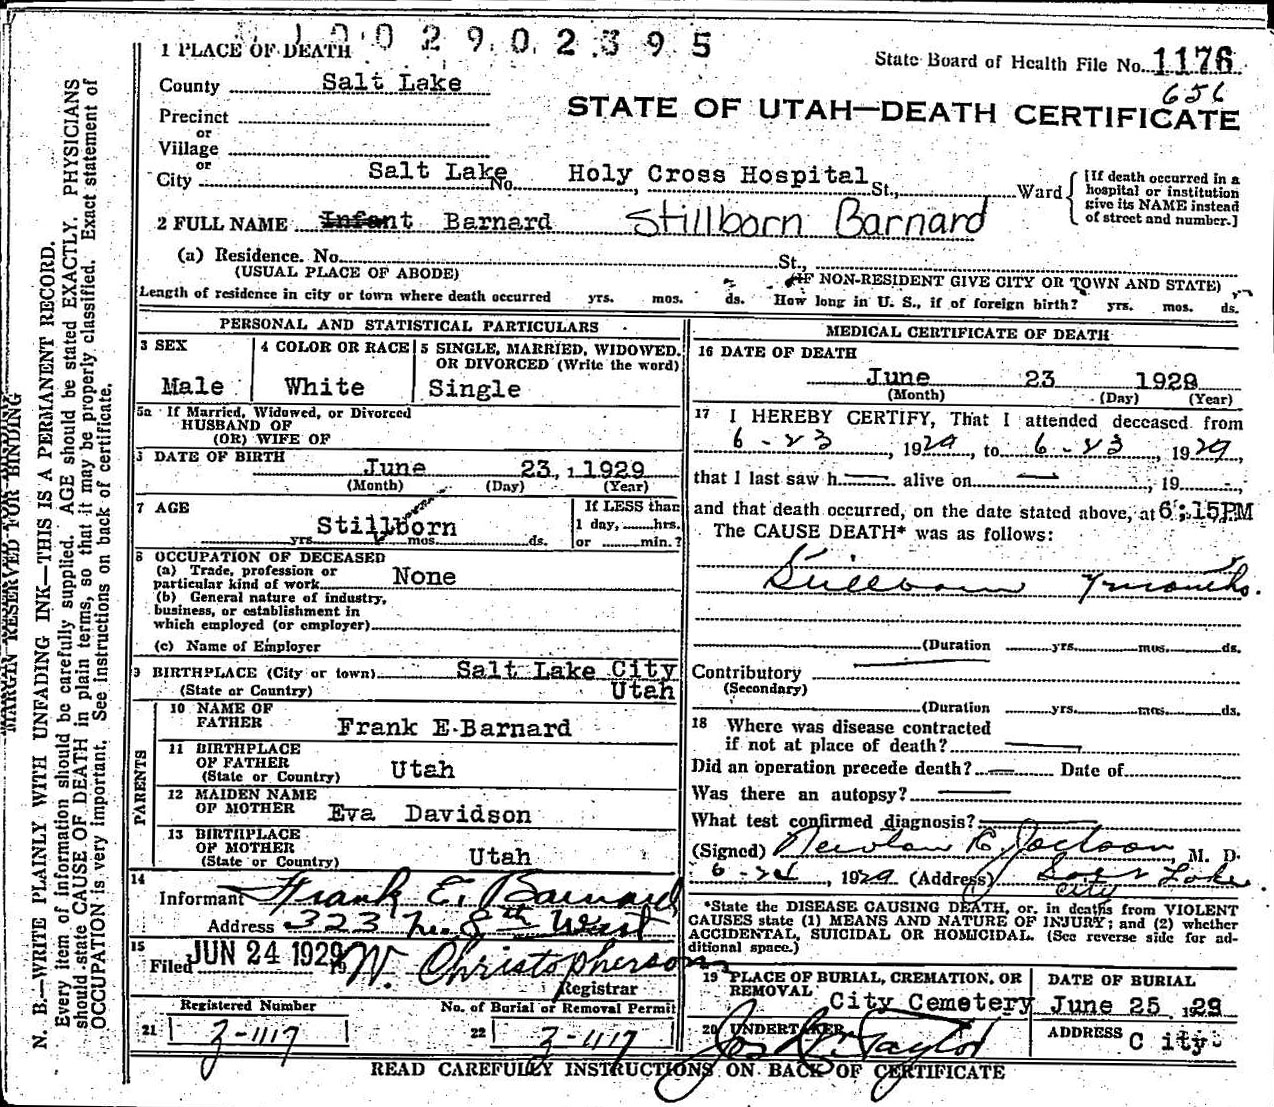 1 0 0 2 9 0 2 3 9 5
1 PLACE OF DEATH
State Board of Health File No. 1176
656
County Salt Lake
STATE OF UTAH—DEATH CERTIFICATE
Precinct
or
Village
or
City Salt Lake No. Holy Cross Hospital St., Ward
[If death occurred in a hospital or institution give its NAME instead of street and number.]
2 FULL NAME Infant Barnard Stillborn Barnard
(a) Residence. No. St.,
(USUAL PLACE OF ABODE) (IF NON-RESIDENT GIVE CITY OR TOWN AND STATE)
Length of residence in city or town where death occurred yrs. mos. ds. How long in U. S., if of foreign birth? yrs. mos. ds.
PERSONAL AND STATISTICAL PARTICULARS
3 SEX
Male
4 COLOR OR RACE
White
5 SINGLE, MARRIED, WIDOWED,
OR DIVORCED (Write the word)
Single
5a If Married, Widowed, or Divorced
HUSBAND OF
(OR) WIFE OF
DATE OF BIRTH
June 23, 1929
(Month) (Day) (Year)
7 AGE
Stillborn
yrs. mos. ds.
If LESS than
1 day, hrs.
or min.?
8 OCCUPATION OF DECEASED
(a) Trade, profession or
particular kind of work None
(b) General nature of industry,
business, or establishment in
which employed (or employer)
(c) Name of Employer
9 BIRTHPLACE (City or town) Salt Lake City
(State or Country) Utah
PARENTS
10 NAME OF
FATHER Frank E. Barnard
11 BIRTHPLACE
OF FATHER
(State or Country) Utah
12 MAIDEN NAME
OF MOTHER Eva Davidson
13 BIRTHPLACE
OF MOTHER
(State or Country) Utah
14
Informant Frank E. Barnard
Address 323 No. 8th West
15
Filed JUN 24 1929 19 W. Christopherson
Registrar
Registered Number No. of Burial or Removal Permit
21 Z-1117 22 Z-1117
MEDICAL CERTIFICATE OF DEATH
16 DATE OF DEATH
June 23 1929
(Month) (Day) (Year)
17 I HEREBY CERTIFY, That I attended deceased from
6-23, 1929, to 6-23, 1929,
that I last saw h alive on , 19 ,
and that death occurred, on the date stated above, at 6:15PM
The CAUSE DEATH* was as follows:
Stillborn 7 months.
(Duration yrs. mos. ds.
Contributory
(Secondary)
(Duration yrs. mos. ds.
18 Where was disease contracted
if not at place of death?
Did an operation precede death? Date of
Was there an autopsy?
What test confirmed diagnosis?
(Signed) Jackson, M. D.
6-24, 1929 (Address) Salt Lake
City
*State the DISEASE CAUSING DEATH, or, in deaths from VIOLENT
CAUSES state (1) MEANS AND NATURE OF INJURY; and (2) whether
ACCIDENTAL, SUICIDAL OR HOMICIDAL. (See reverse side for ad-
ditional space.)
19 PLACE OF BURIAL, CREMATION, OR
REMOVAL City Cemetery
DATE OF BURIAL
June 25 1929
20 UNDERTAKER
Taylor
ADDRESS City
READ CAREFULLY INSTRUCTIONS ON BACK OF CERTIFICATE
MARGIN RESERVED FOR BINDING
N. B.—WRITE PLAINLY WITH UNFADING INK—THIS IS A PERMANENT RECORD.
Every item of information should be carefully supplied. AGE should be stated EXACTLY. PHYSICIANS
should state CAUSE OF DEATH in plain terms, so that it may be properly classified. Exact statement of
OCCUPATION is very important. See instructions on back of certificate.